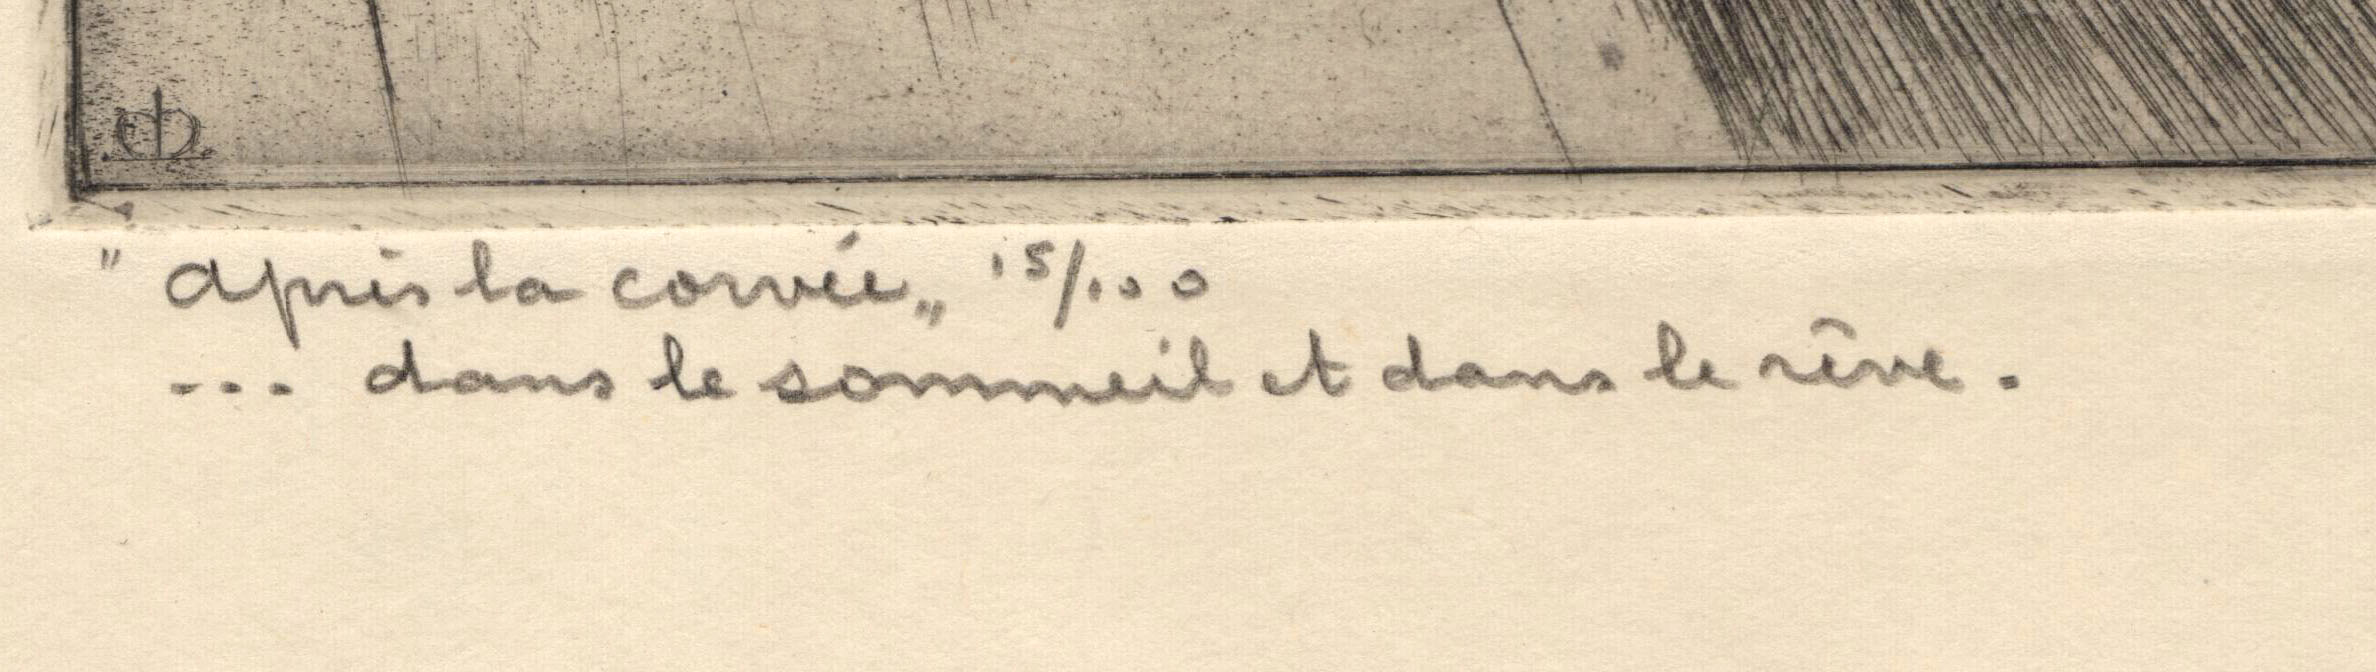 " Après la corvée „ 15/100
... dans le sommeil et dans le rêve.